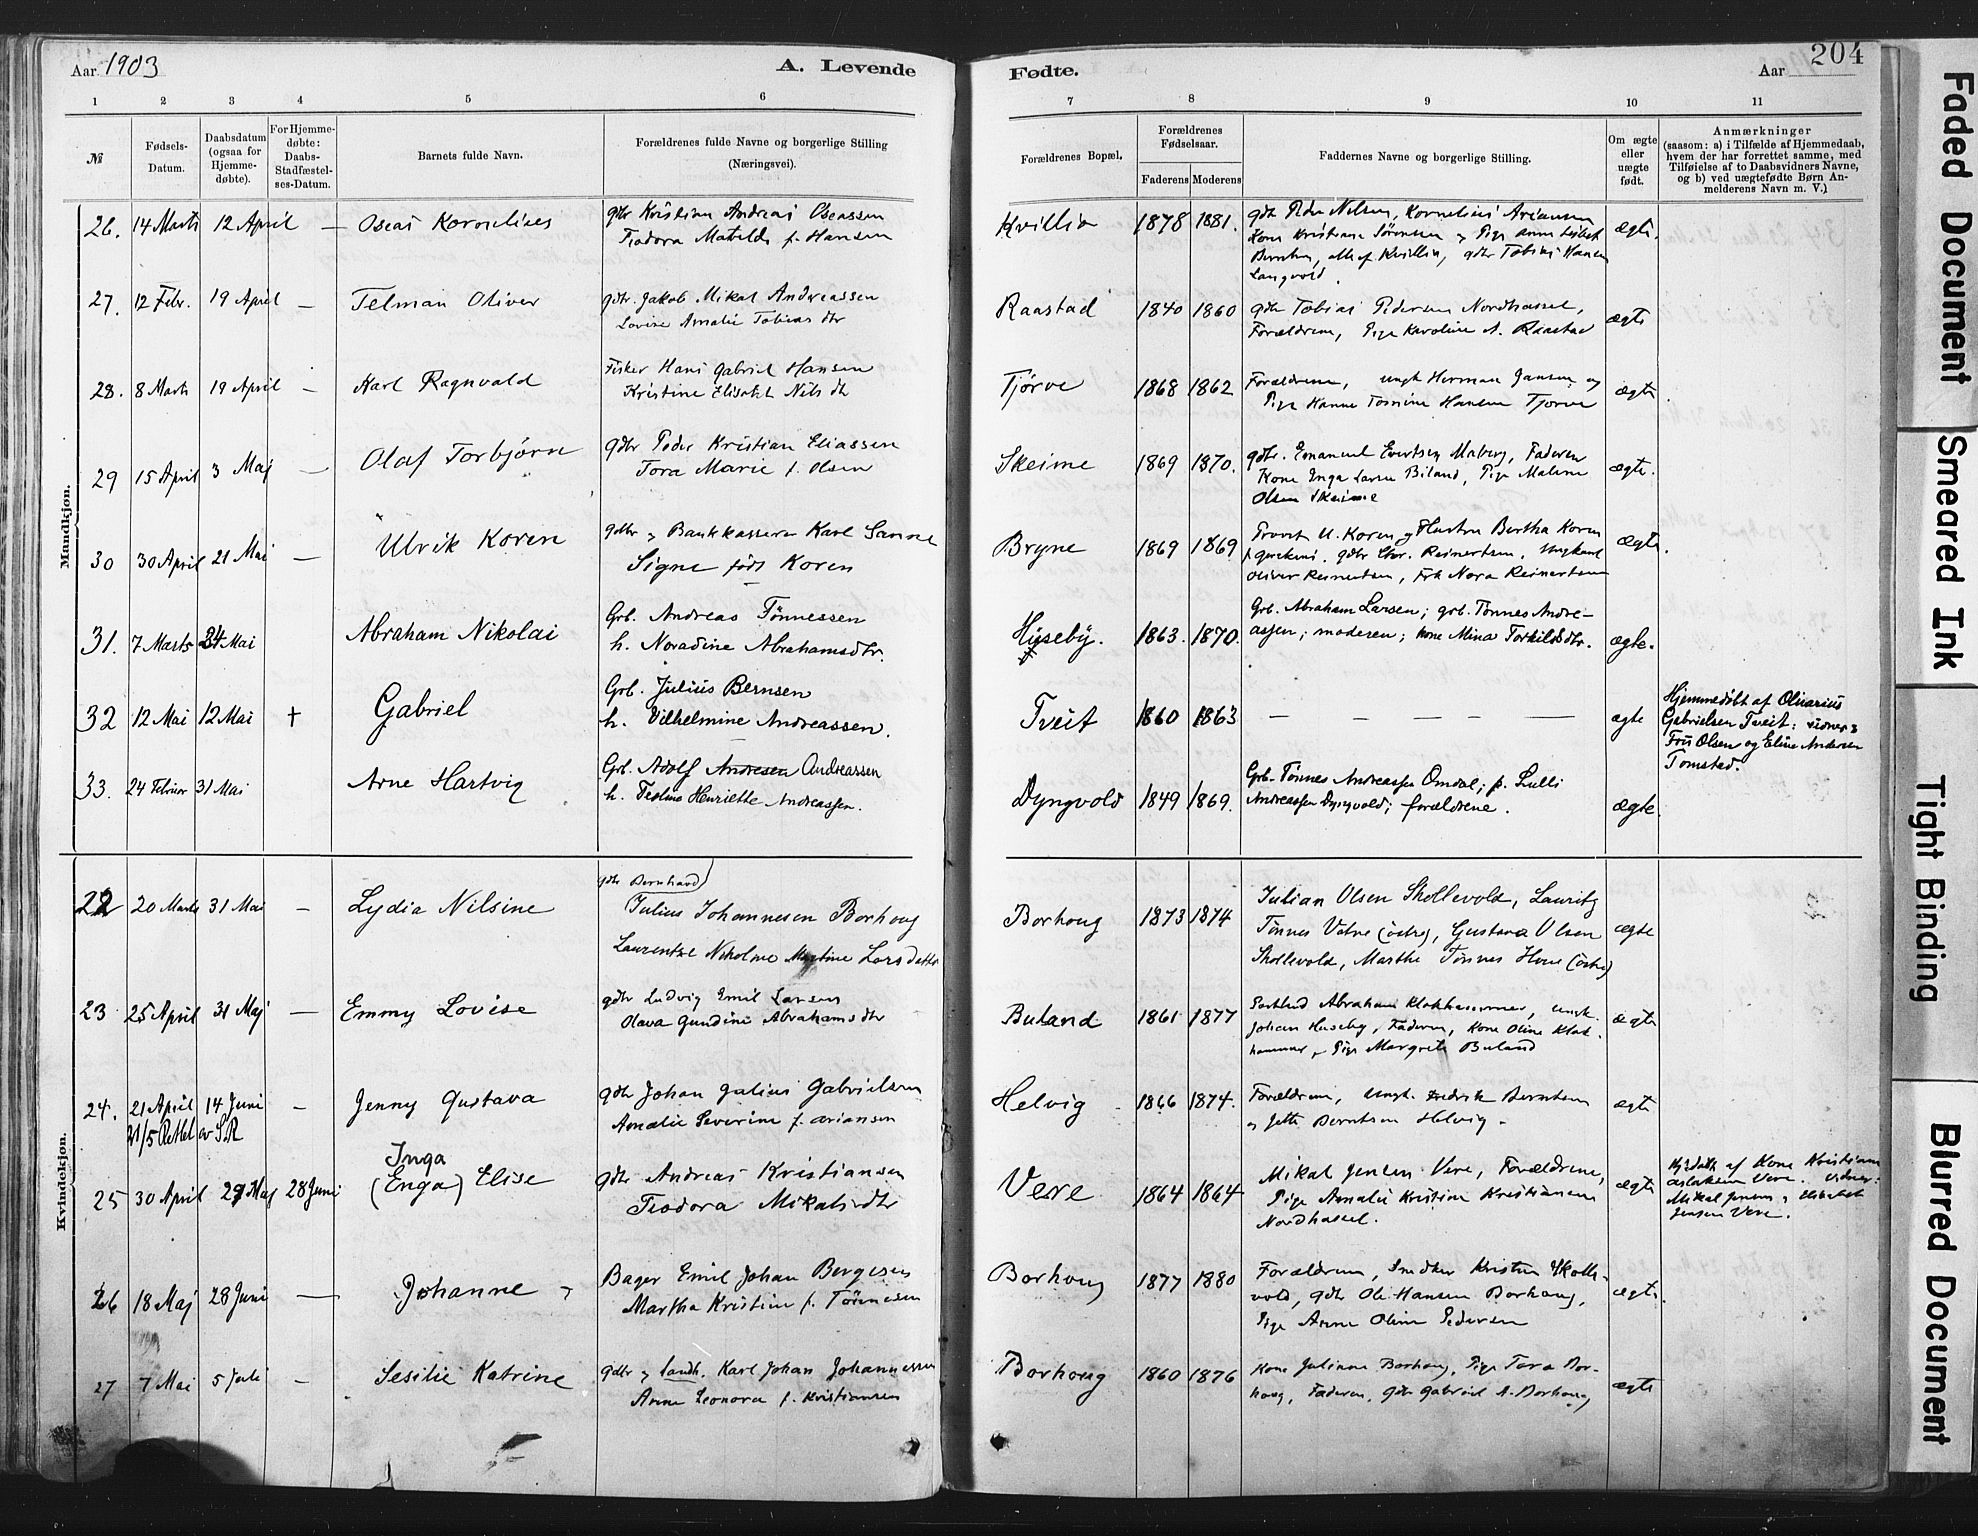 Aar 1903
A. Levende
Fødte.
Aar
204
1 2 3 4 5 6 7 8 9 10 11
№
Fødsels-
Datum.
Daabsdatum
(ogsaa for
Hjemme-
døbte).
For Hjemme-
døbte:
Daabs-
Stadfæstel-
ses-Datum.
Barnets fulde Navn.
Forældrenes fulde Navne og borgerlige Stilling
(Næringsvei).
Forældrenes Bopæl.
Forældrenes
Fødselsaar.
Faderens Moderens
Faddernes Navne og borgerlige Stilling.
Om ægte
eller
uægte
født.
Anmærkninger
(saasom: a) i Tilfælde af Hjemmedaab,
hvem der har forrettet samme, med
Tilføielse af to Daabsvidners Navne,
og b) ved uægtefødte Børn An-
melderens Navn m. V.)
Mandkjøn.
26. 14 Marts 12 April — Oscar Kornelius
gdbr Kristian Andreas Oseassen
Teodora Matilde f. Hansen
Kvillia 1878 1881.
gdbr Peder Nilsen, Kornelius Ariansen
Kone Kristiane Sørensen
Berntsen, alle af Kvillia, gdbr Tobias Hansen
Langvold
ægte.
27. 12 Febr. 19 April — Telman Oliver
gdbr. Jakob Mikal Andreassen
Lovise Amalie Tobias dtr
Raastad 1840 1860
gdbr Tobias Pedersen Nordhassel,
Forældrene, Pige Karoline A. Raastad
ægte
28. 8 Marts 19 April — Karl Ragnvald
Fisker Hans Gabriel Hansen
Kristine Elisabet Nils dtr
Tjørve 1868 1862
Forældrene, ungk Herman Jansen og
Pige Hanne Tomine Hansen Tjørve
ægte
29 15 April 3 Maj — Olaf Torbjørn
gdbr Peder Kristian Eliassen
Tora Marie f. Olsen
Skeime 1869 1870.
gdbr. Emanuel Evertsen Maberg, Faderen
Kone Inga Larsen Biland, Pige Malene
Olsen Skeime
ægte.
30 30 April 21 Mai — Ulrik Koren
gdbr og Bankkasserer Karl Sanne
Signe født Koren
Bryne 1869 1869
Provst U. Koren og Hustru Bertha Koren
gdbr Chr. Reinertsen, Ungkarl
Oliver Reinertsen, Frk Nora Reinertsen
ægte.
31. 7 Marts 24 Mai Abraham Nikolai
Grb. Andreas Tönnessen
h. Noradine Abrahamsdtr.
Huseby. 1863. 1870.
Grb. Abraham Larsen; grb. Tønnes Andre-
assen; moderen; kone Mina Torkildsdtr.
ægte.
32 12 Mai 12 Mai † Gabriel
Grb. Julius Bernsen
h. Vilhelmine Andreassen.
Tveit 1860 1863 — — — — — ægte
Hjemmedöbt af Oluarius
Gabrielsen Tveit: vidner:
Olsen og Eline Andersen
Tomstad.
33. 24 Februar 31 Mai Arne Hartvig
Grb. Adolf Andresen Andreassen
h. Teoline Henriette Andreassen.
Dyngvold 1849 1869.
Grb. Tønnes Andreassen Omdal; p. Lulli
Andreassen Dyngvold; forældrene.
ægte.
Kvindekjøn.
22 20 Marts 31 Mai — Lydia Nilsine
gdbr Bernhard
Julius Johannesen Borhoug
Laurentze Nikoline Martine Larsdatter
Borhoug 1873 1874
Julian Olsen Skollevold, Lauritz
Tønnes Vatne (østre), Gustava Olsen
Skollevold, Marthe Tønnes Hove (østre)
ægte
23 25 April 31 Maj — Emmy Lovise
gdbr Ludvig Emil Larsen
Olava Gundine Abrahams dtr
Buland 1861 1877
Abraham Klokhammer, ungk.
Johan Huseby, Faderen, Kone Oline Klok-
hammer, Pige Margrete Buland
ægte
24. 21 April 14 Juni — Jenny Gustava
21/5 Rettet av S.R
gdbr Johan Julius Gabrielsen
Amalie Severine f. Ariansen
Helvig 1866 1874.
Forældrene, Ungk. Fredrik Berntsen
og Jette Berntsen Helvig.
ægte
25 30 April 29 Maj 28 Juni
Inga
(Enga) Elise
gdbr Andreas Kristiansen
Teodora Mikals dtr
Vere 1864 1864
Mikal Jensen Vere, Forældrene,
Pige Amalie Kristine Kristiansen
Nordhassel.
ægte
Hjdøbt af Kone Kristiane
Aslaksen Vere. Vidner:
Mikal Jensen, Elisabet
Jensen Vere.
26 18 Maj 28 Juni — Johanne
Bager Emil Johan Børgesen
Martha Kristine f. Tönnesen
Borhoug 1877 1880
Forældrene, Snedker Kristen Skolle-
vold, gdbr Ole Hansen Borhoug,
Pige Anne Oline Pedersen
ægte.
27 7 Mai 5 Juli — Sesilie Katrine
gdbr og landh. Karl Johan Johannessen
Anne Leonora f. Kristiansen
Borhoug 1860 1876
Kone Julianne Borhoug, Pige Tora Bor-
houg, Faderen, gdbr Gabriel A. Borhoug
ægte
Faded Document
Smeared Ink
Tight Binding
Blurred Document